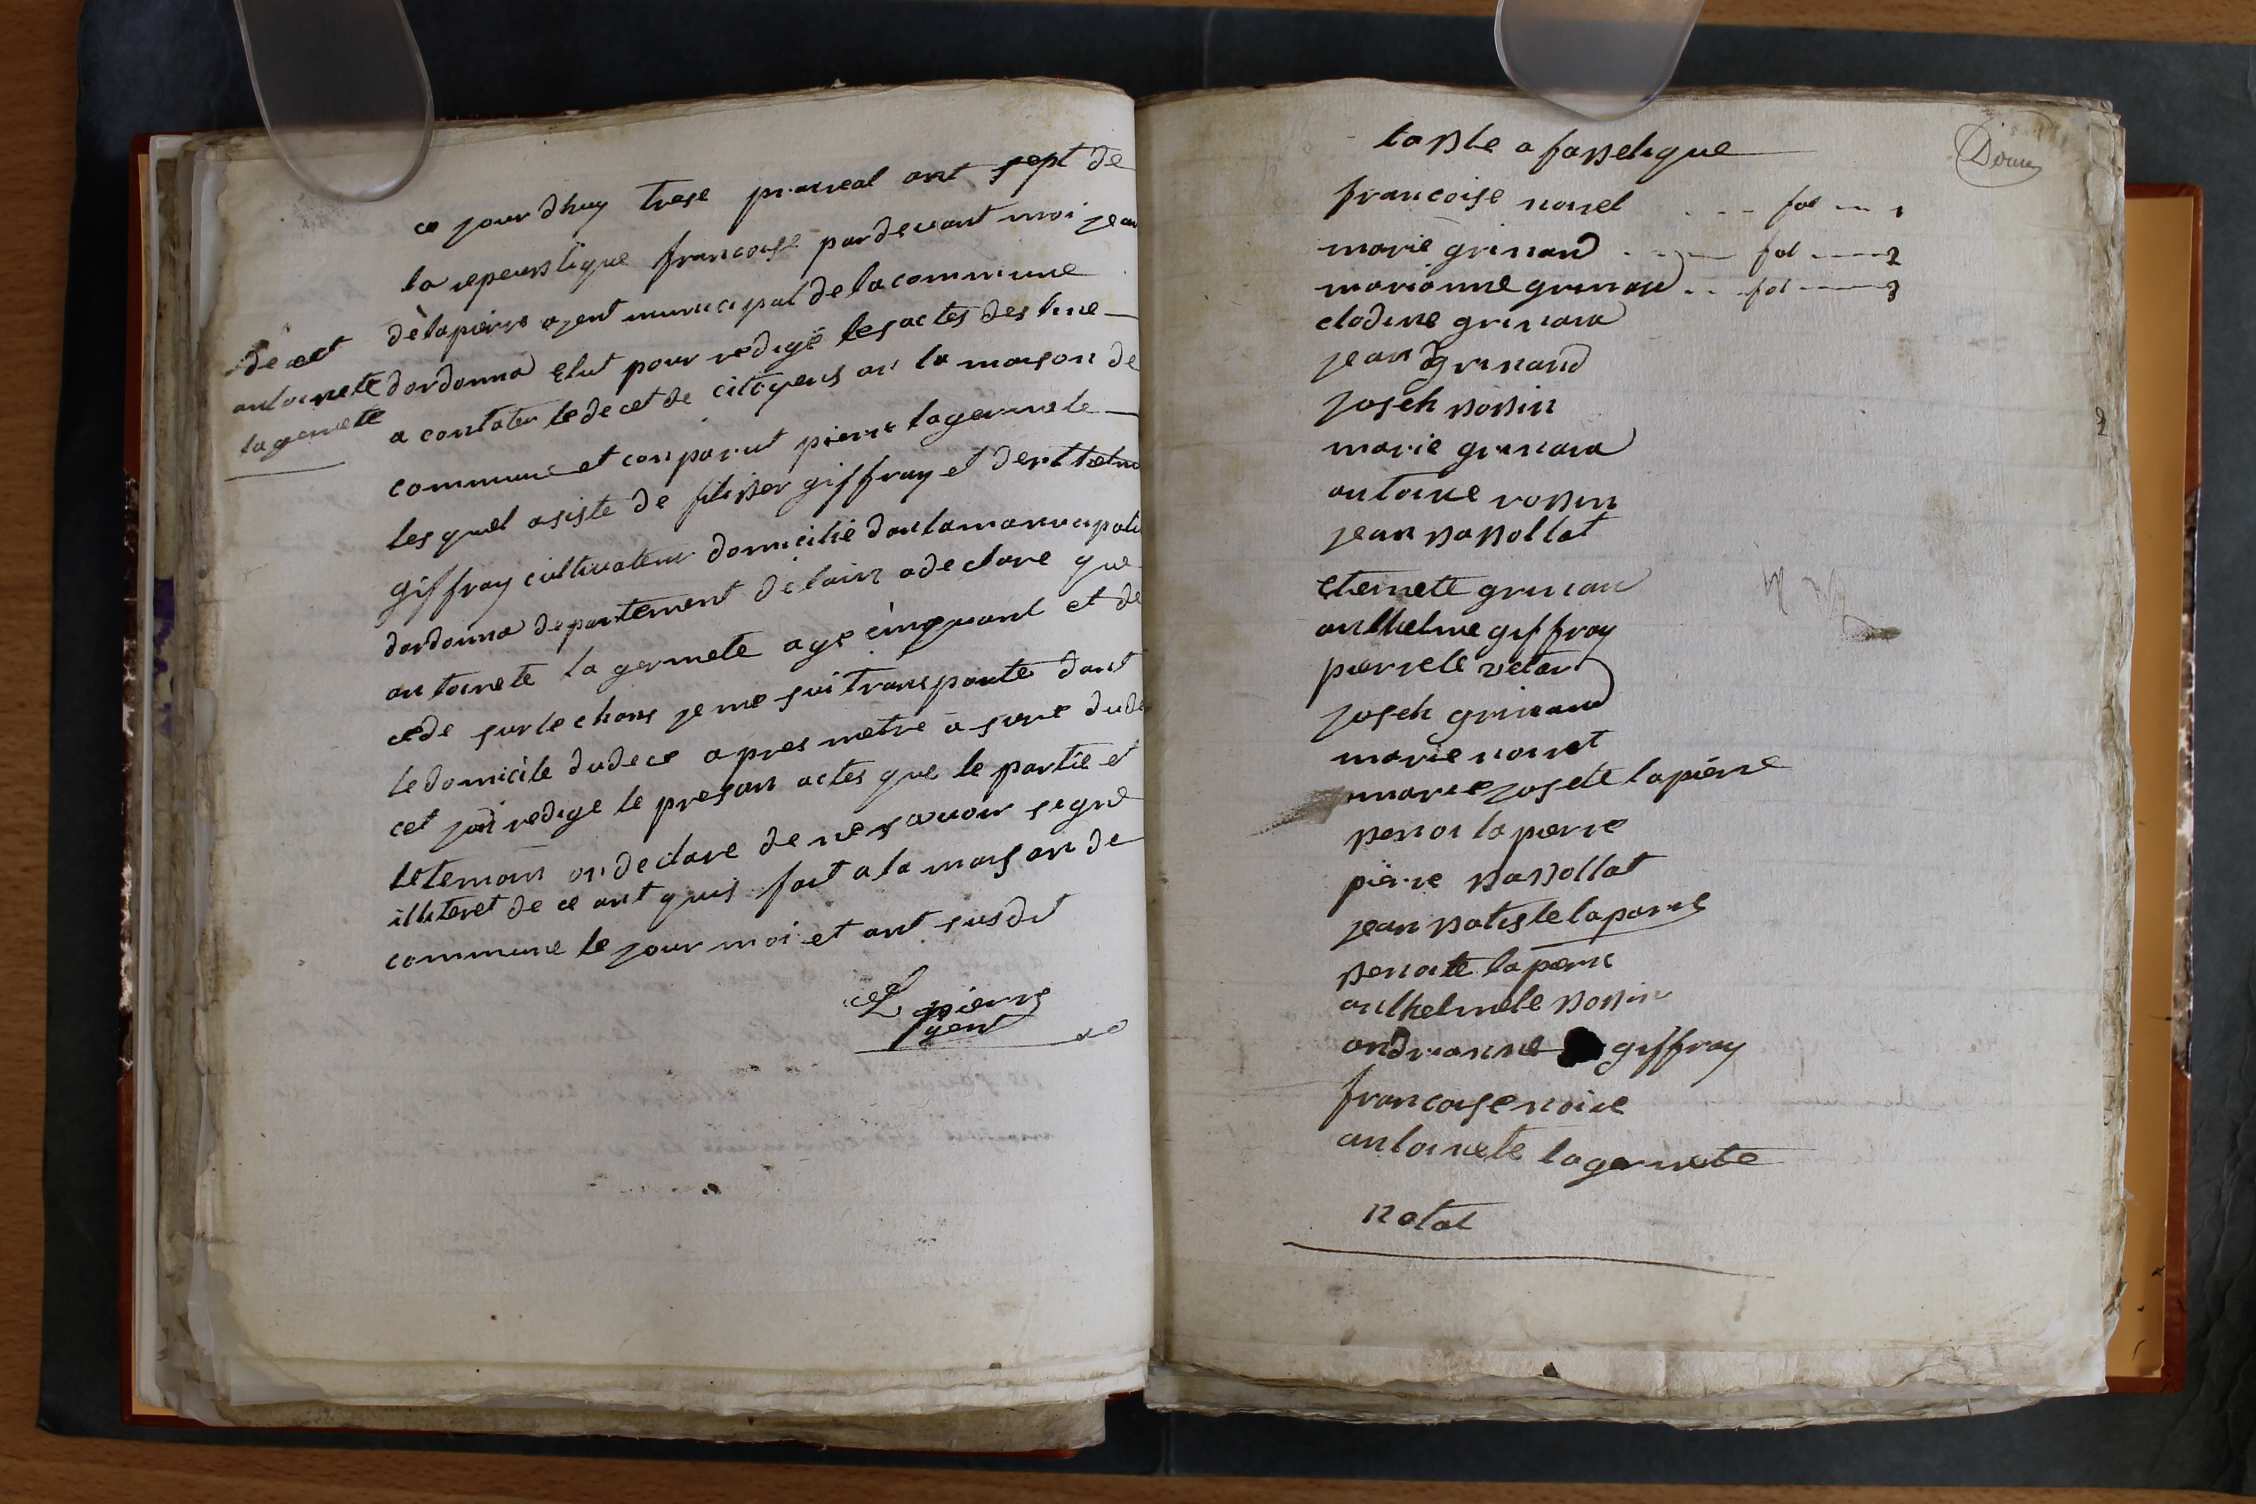 ce jour dhuy trese prarieal ant sept de
la repeublique francoise pardevant moi jean
delapierre agent municipal de la commune
dordonna elut pour redige les actes destine
a contater le decet de citoyens an la maison de
commune et conparut pierre lagernete
les quel asiste de filiber giffray et dentthelme
giffray cultivateur domicilié dant lamanucipali
dordonna departement delain a declare que
antoinete la gernete age cinquant et de
cede surle chans je me sui transporte dant
ledomicile dudece apres metre a sure dude
cet jai redige le presan actes que le partie et
letemoin on declare de ne savoir signe
illiteret de ce ant quis fait a la maison de
commune le jour moi et ant susdit
Lapierre
agent
decet
antoinete
lagernete
table a fabetique
Dixm
francoise noirel . . . fol --- 1
marie grinand . . . fol --- 2
marianne grinand . . . fol --- 3
clodine grinand
jean grinand
joseh bobin
marie grinand
antoine robin
jean babollat
etiennete grinand
anthelme giffray
pierrete vetar
joseh grinand
marie noiret
marie josete lapierre
benoi lapierre
pierre babollat
jean batiste lapierre
benoite lapierre
anthelmete bobin
andrianne giffray
francoise noire
antoinete lagernete
notat
2